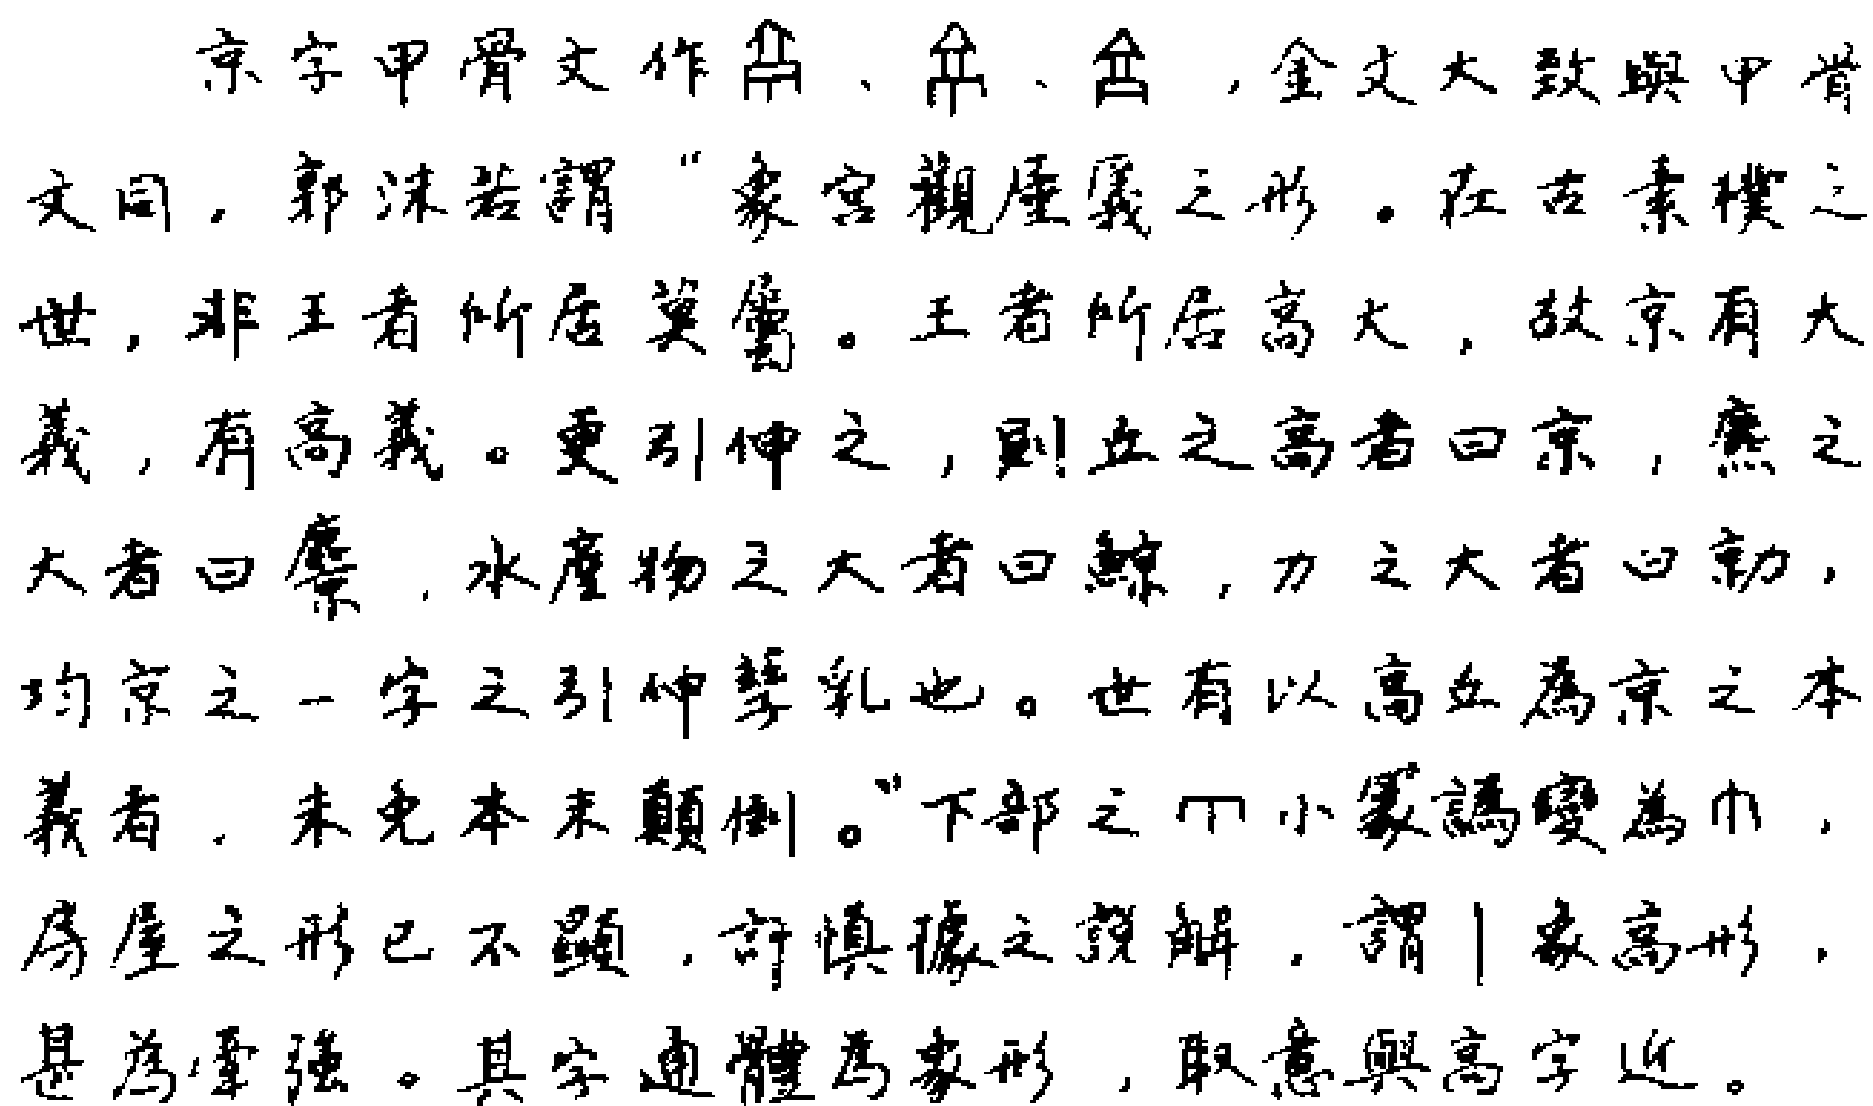 京字甲骨文作、、，金文大致與甲骨
文同，郭沫若謂“象宮觀厜㕒之形。在古素樸之
世，非王者所居莫屬。王者所居高大，故京有大
義，有高義。更引伸之，則丘之高者曰京，麃之
大者曰麖，水產物之大者曰鯨，力之大者曰勍，
均京之一字之引伸孳乳也。世有以高丘為京之本
義者，未免本末顛倒。”下部之小篆譌變為，
房屋之形已不顯，許慎據之說解，謂丨象高形，
甚為牽強。其字通體為象形，取意與高字近。